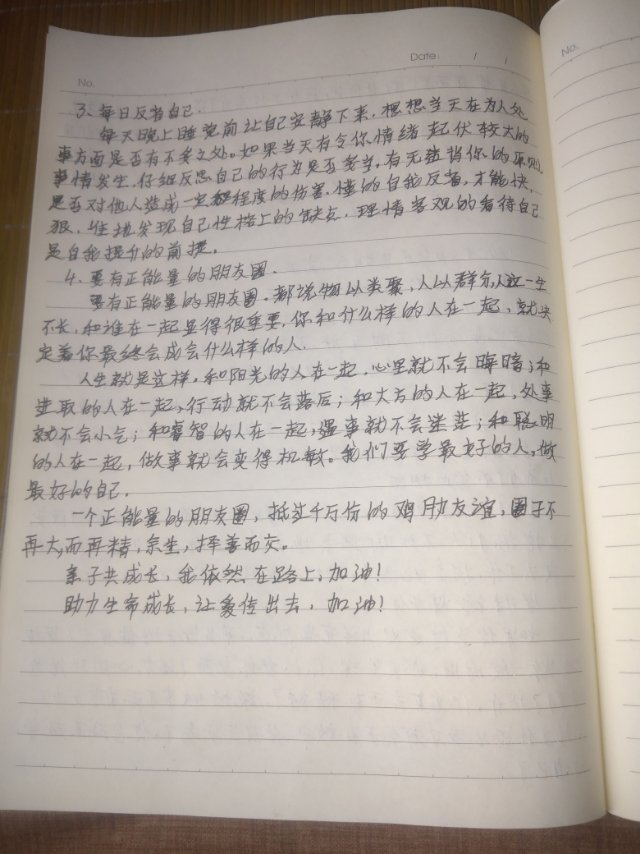 No.
Date: / /
No.
3、每日反省自己.
每天晚上睡觉前让自己安静下来,想想当天在为人处
事方面是否有不妥之处。如果当天有令你情绪起伏较大的
事情发生,仔细反思自己的行为是否妥当,有无造
是否对他人造成一定程度的伤害,懂的自我反省,才能快,
狠,准地发现自己性格上的缺点,理情客观的看待自己
是自我提升的前提。
4、要有正能量的朋友圈.
要有正能量的朋友圈.都说物以类聚,人以群分,人这一生
不长,和谁在一起显得很重要,你和什么样的人在一起,就决
定着你最终会成会什么样的人.
人生就是这样,和阳光的人在一起,心里就不会晦暗;和
进取的人在一起,行动就不会落后;和大方的人在一起,处事
就不会小气;和睿智的人在一起,遇事就不会迷茫;和聪明
的人在一起,做事就会变得机敏。我们要学最好的人,做
最好的自己.
一个正能量的朋友圈,抵过千万份的鸡肋友谊,圈子不
再大,而再精,余生,择善而交。
亲子共成长,我依然在路上,加油!
助力生命成长,让爱传出去,加油!